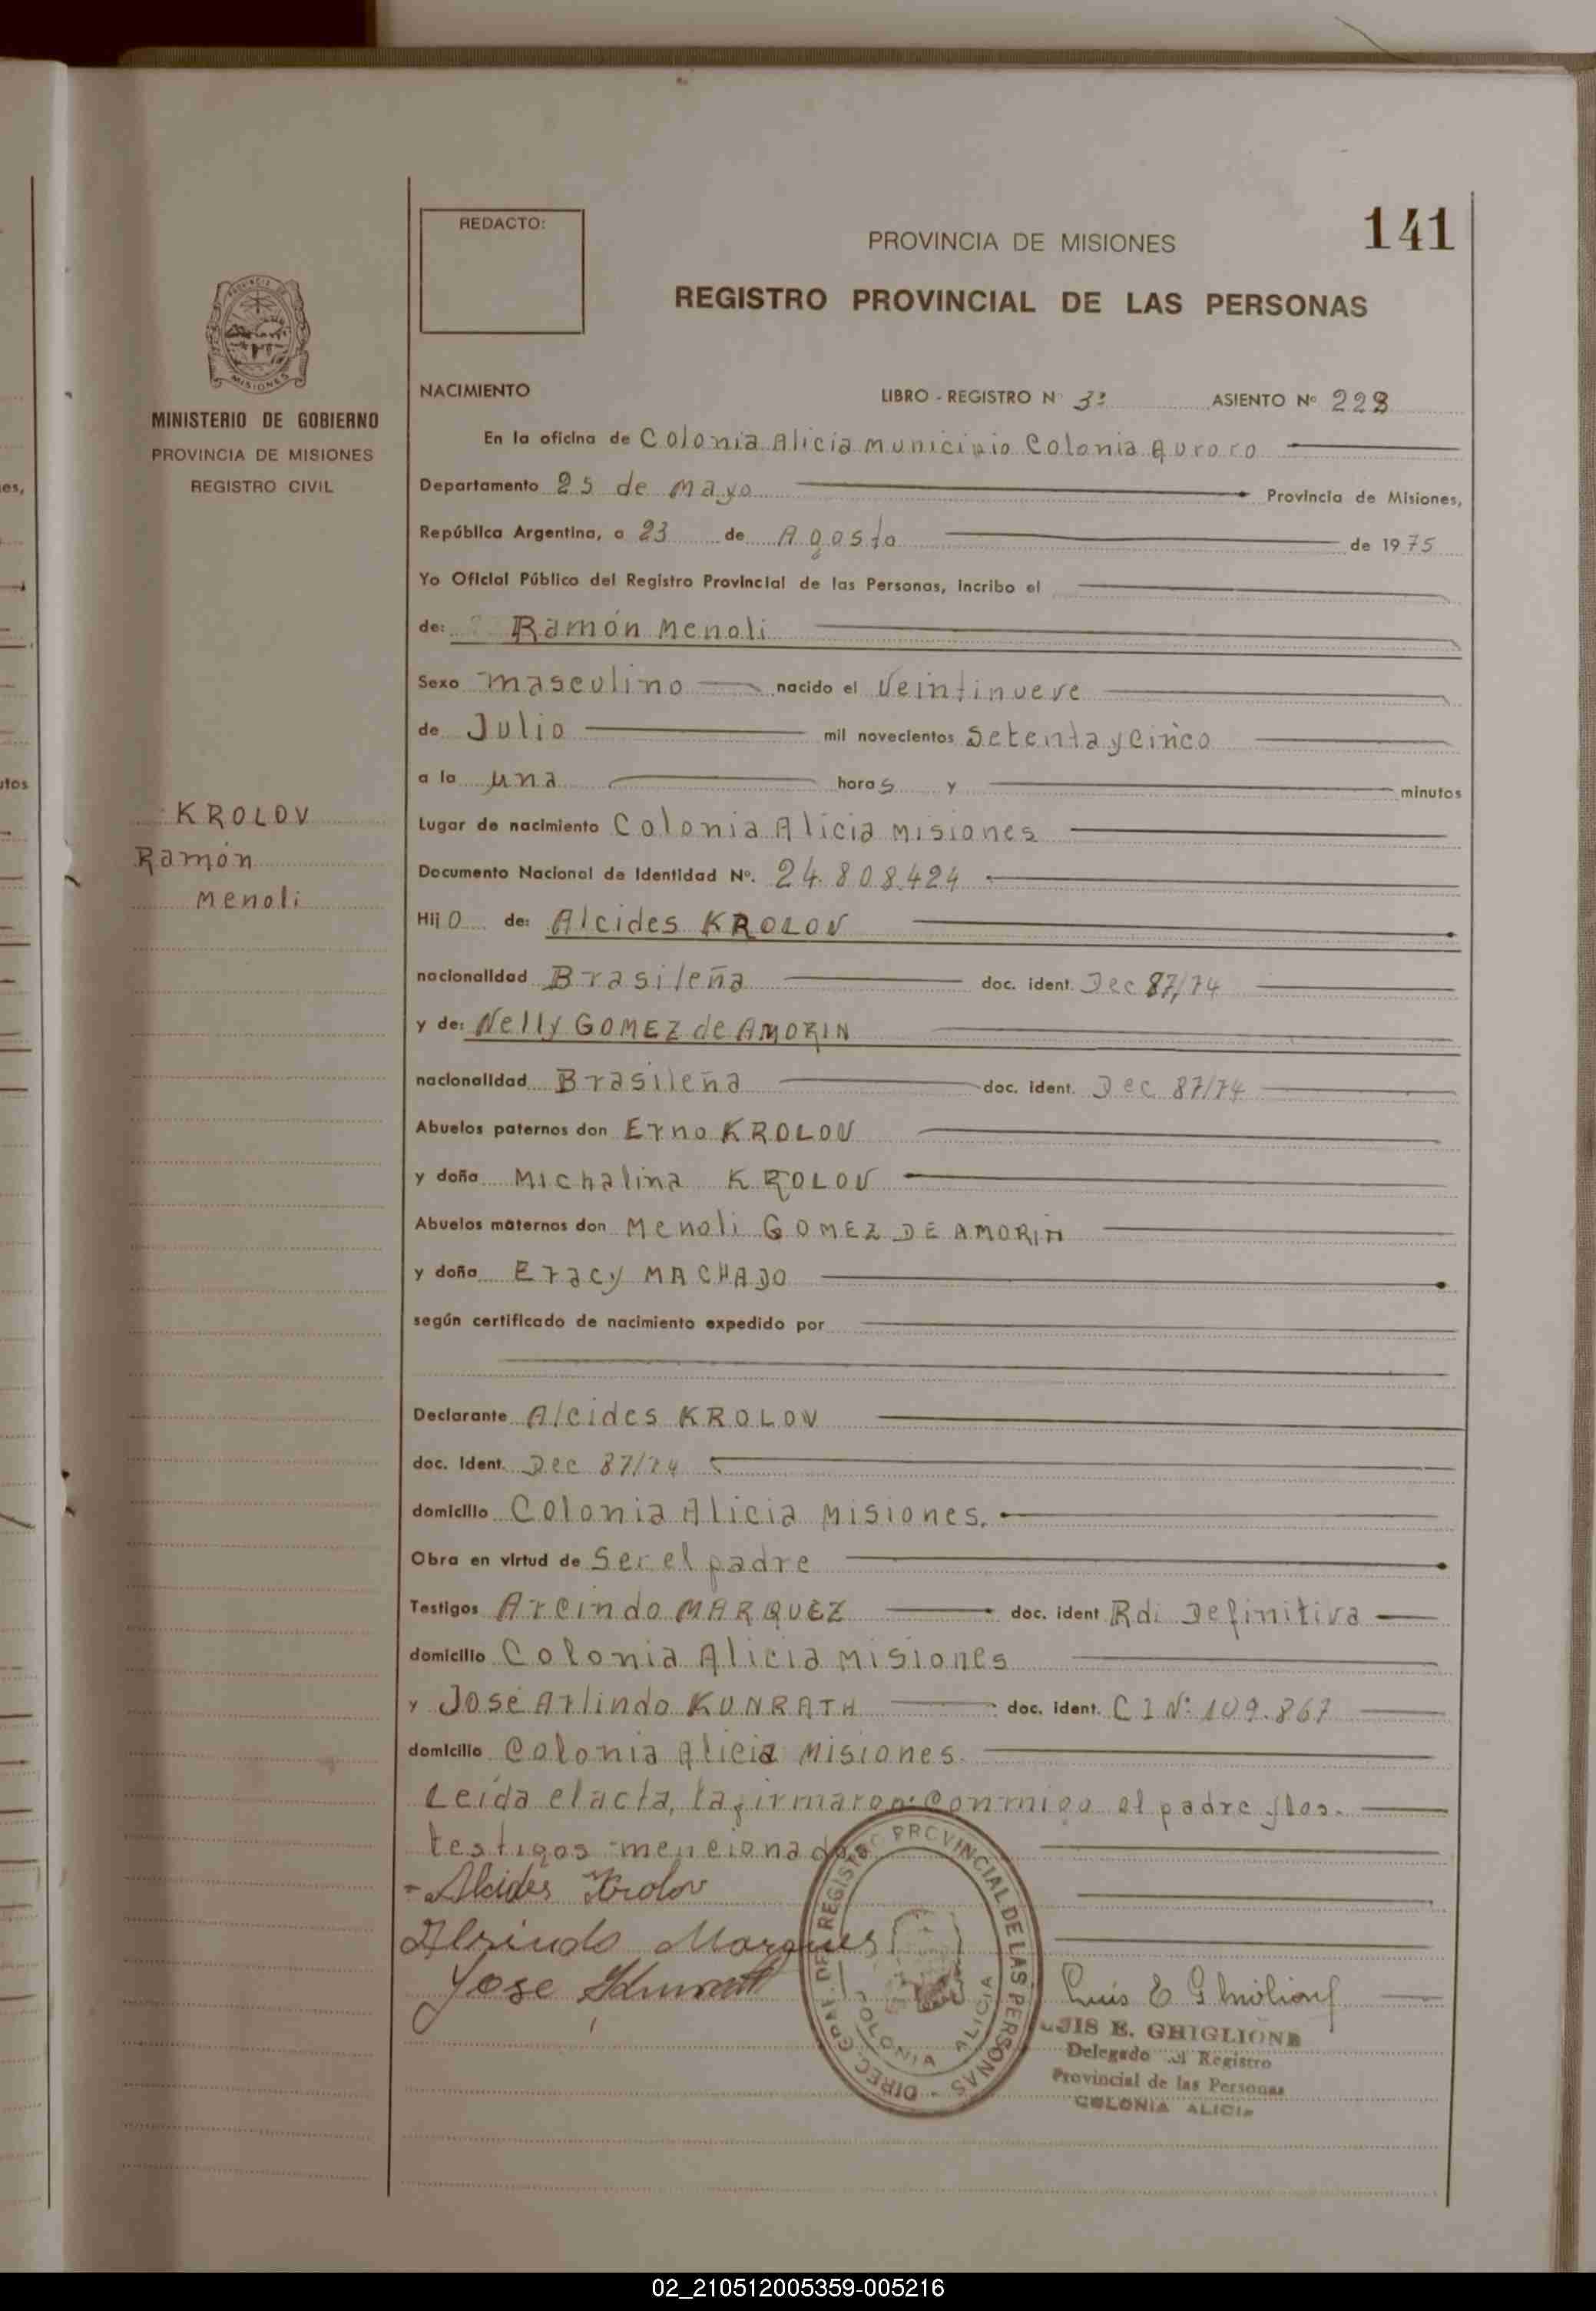 141
REDACTO:
PROVINCIA DE MISIONES
REGISTRO PROVINCIAL DE LAS PERSONAS
MISIONES
MINISTERIO DE GOBIERNO
PROVINCIA DE MISIONES
REGISTRO CIVIL
KROLOV
Ramón
Menoli
NACIMIENTO LIBRO - REGISTRO Nº 3º ASIENTO Nº 223
En la oficina de Colonia Alicia Municipio Colonia Aurora
Departamento 25 de Mayo Provincia de Misiones,
República Argentina, a 23 de Agosto de 1975
Yo Oficial Público del Registro Provincial de las Personas, incribo el
de: Ramón Menoli
Sexo masculino nacido el Veintinueve
de Julio mil novecientos Setenta y Cinco
a la una horas y minutos
Lugar de nacimiento Colonia Alicia Misiones
Documento Nacional de Identidad Nº. 24.808.424
Hijo de: Alcides KROLOV
nacionalidad Brasileña doc. ident. Dec 87/74
y de: Nelly GOMEZ de AMORIN
nacionalidad Brasileña doc. ident. Dec 87/74
Abuelos paternos don Erno KROLOV
y doña Michalina KROLOV
Abuelos maternos don Menoli GOMEZ DE AMORIN
y doña Eracy MACHADO
según certificado de nacimiento expedido por
Declarante Alcides KROLOV
doc. Ident. Dec 87/74
domicilio Colonia Alicia Misiones.
Obra en virtud de Ser el padre
Testigos Arcindo MARQUEZ doc. ident Rdi Definitiva
domicilio Colonia Alicia Misiones
y José Arlindo KUNRATH doc. ident. CI Nº 109.867
domicilio Colonia Alicia Misiones.
Leída el acta, la firmaron conmigo el padre y los
testigos mencionados
Alcides Krolov
Marques
Jose
DIREC. GRAL. DEL REGISTRO PROVINCIAL DE LAS PERSONAS
COLONIA ALICIA
Luis E Ghiglione
LUIS E. GHIGLIONE
Delegado del Registro
Provincial de las Personas
COLONIA ALICIA
02_210512005359-005216